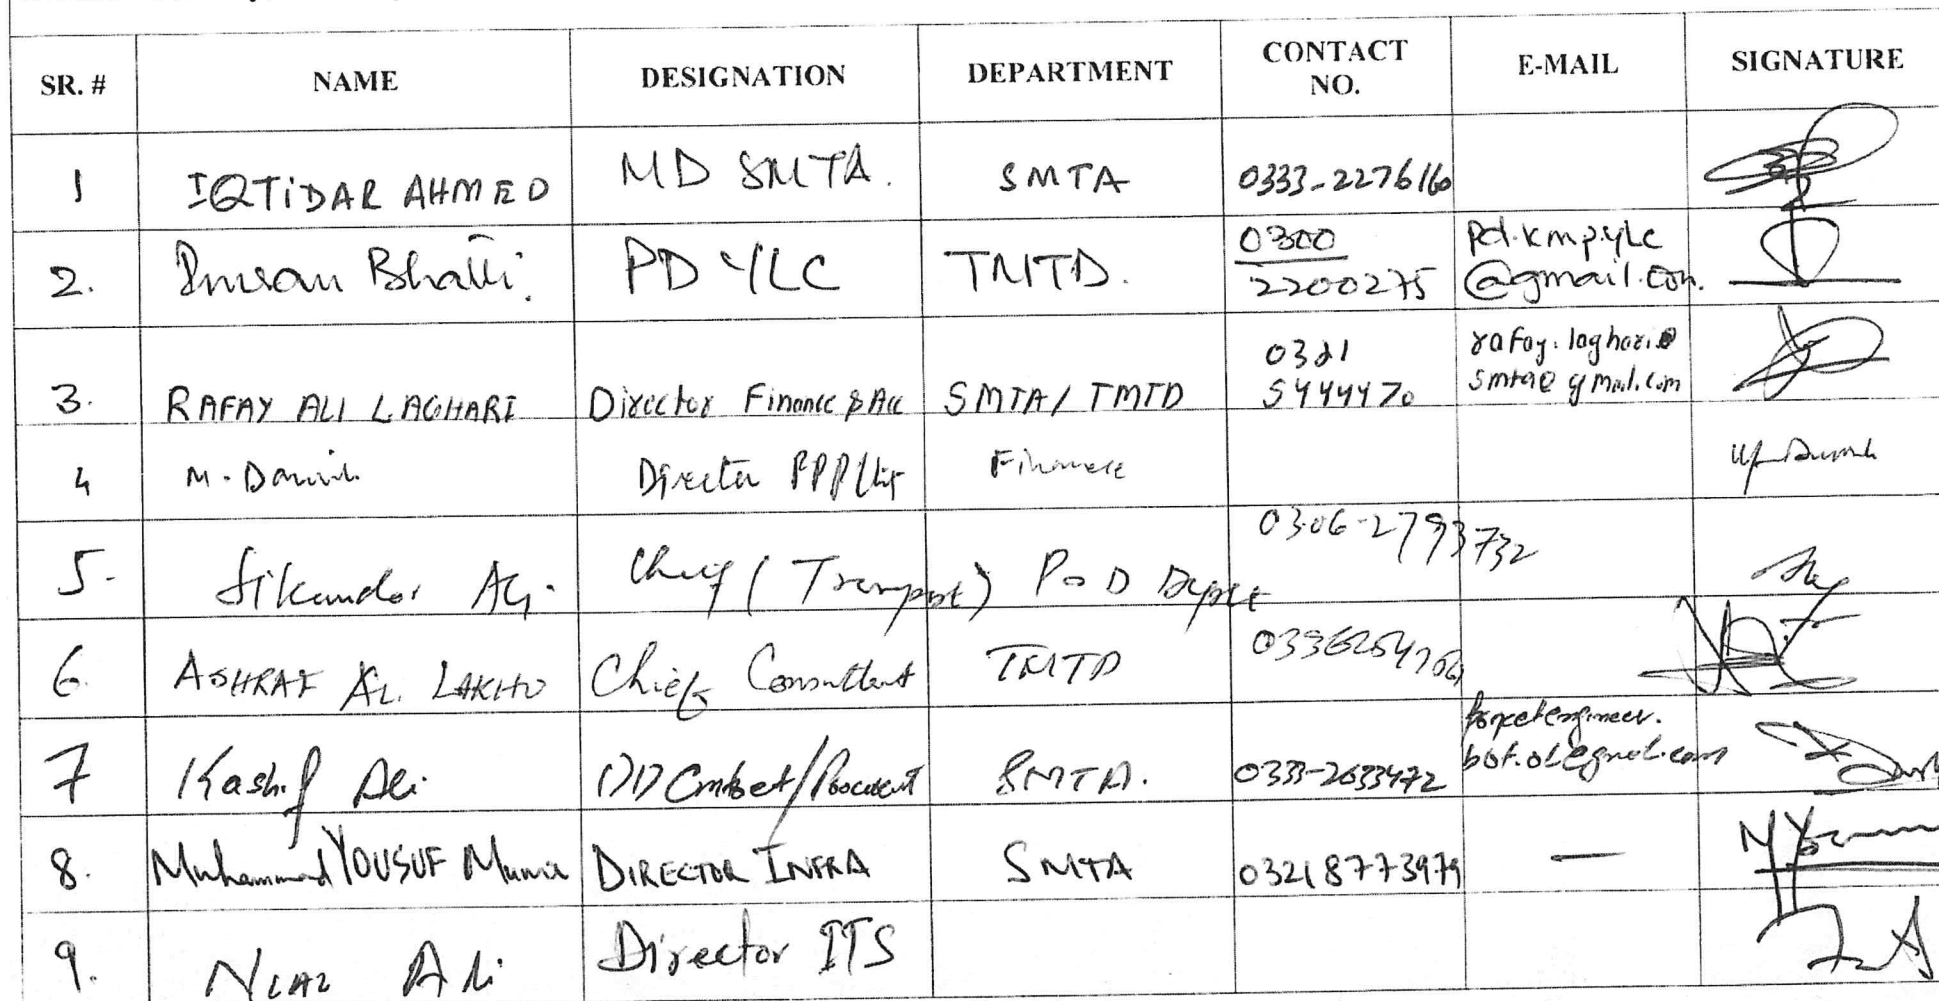 SR. # NAME DESIGNATION DEPARTMENT CONTACT NO. E-MAIL SIGNATURE
1 IQTIDAR AHMED MD SMTA. SMTA 0333-2276160
2. Imran Bhatti. PD YLC TMTD. 0300 2200275 pd.kmp.ylc @gmail.com.
3. RAFAY ALI LAGHARI Director Finance & Acc SMTA/TMTD 0321 5444470 rafay.laghari@ smta@gmail.com
4 M. Danish Director PPP Finance
5. Sikandar Ali. Chief (Transport) P&D Deptt 0306-2793732
6. ASHRAF ALI LAKHO Chief Consultant TMTD
7 Kashif Ali DD Contract/Procurement SMTA. 0333-2633472
8. Muhammad YOUSUF Munir DIRECTOR INFRA SMTA 03218773979 —
9. NIAZ Ali Director ITS